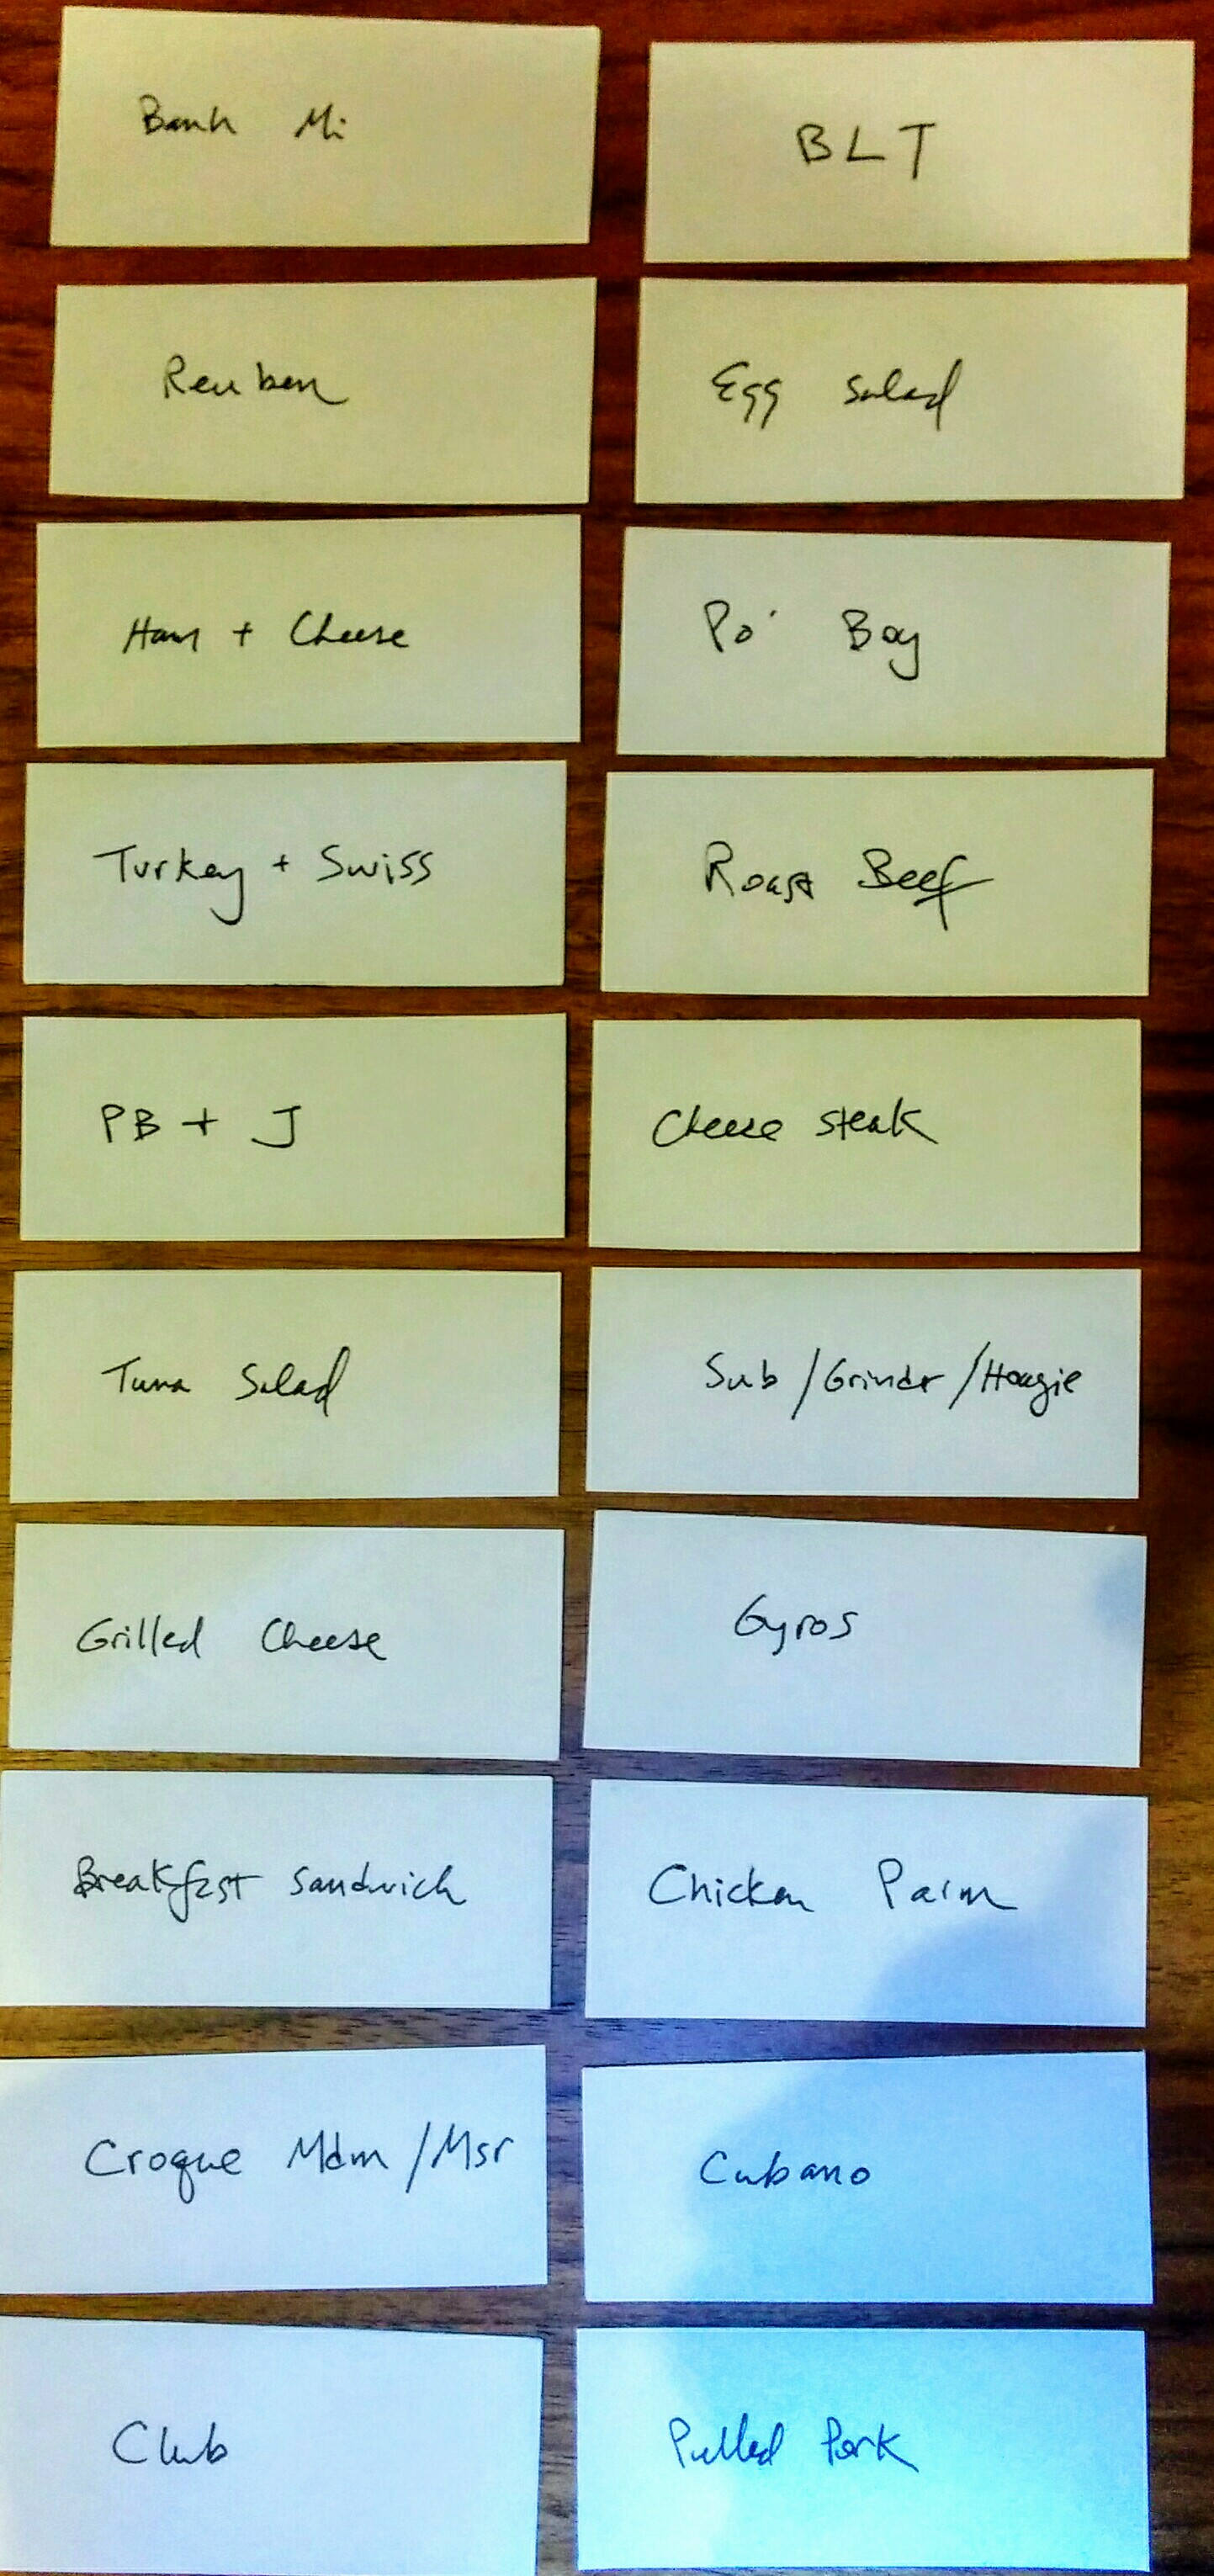 Banh Mi
BLT
Reuben
Egg Salad
Ham + Cheese
Po' Boy
Turkey + Swiss
Roast Beef
PB + J
Cheese steak
Tuna Salad
Sub / Grinder / Hoagie
Grilled Cheese
Gyros
Breakfast Sandwich
Chicken Parm
Croque Mdm / Msr
Cubano
Club
Pulled Pork